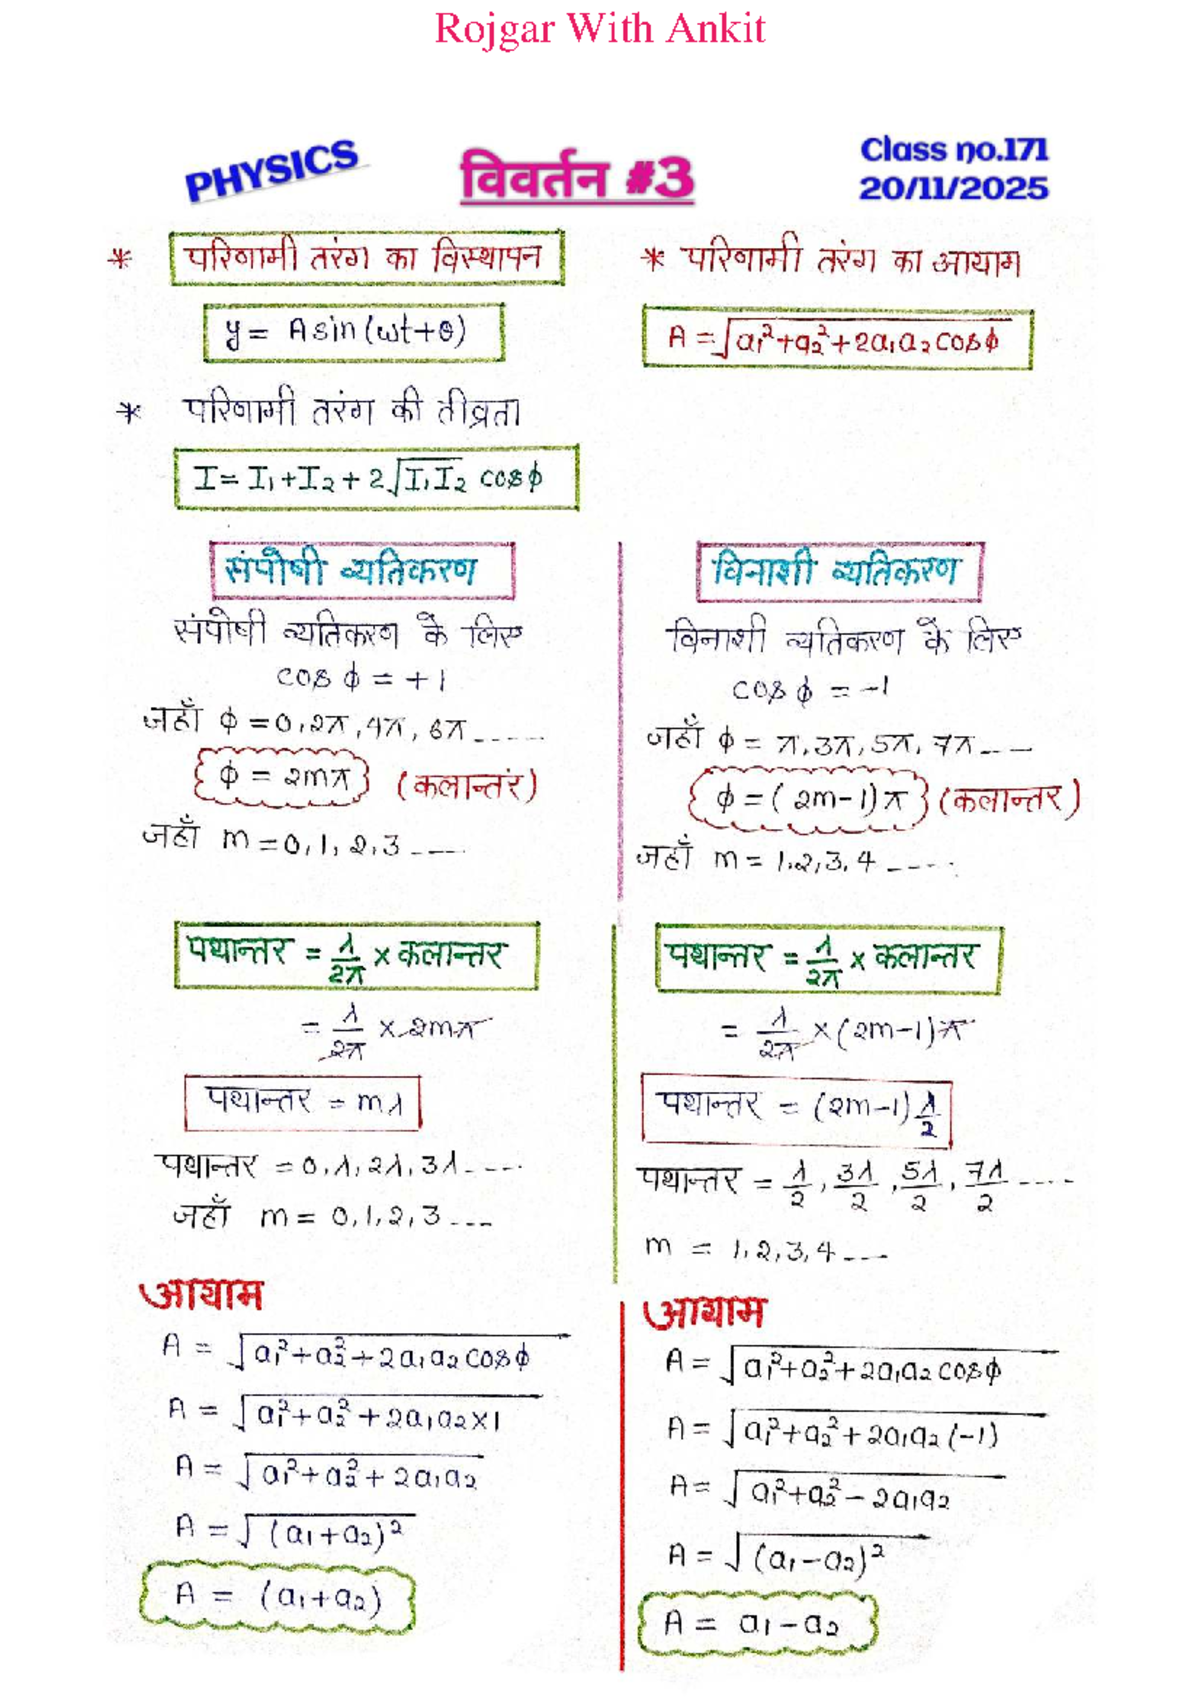 Rojgar With Ankit
PHYSICS
विवर्तन #3
Class no.171
20/11/2025
* परिणामी तरंग का विस्थापन
y = A sin(ωt+θ)
* परिणामी तरंग का आयाम
A = √a₁²+a₂²+2a₁a₂cosϕ
* परिणामी तरंग की तीव्रता
I = I₁+I₂+2√I₁I₂ cosϕ
संपोषी व्यतिकरण
संपोषी व्यतिकरण के लिए
cosϕ = +1
जहाँ ϕ = 0,2π,4π,6π------
ϕ = 2mπ (कलान्तर)
जहाँ m = 0,1,2,3----
पथान्तर = λ/2π × कलान्तर
= λ/2π × 2mπ
पथान्तर = mλ
पथान्तर = 0,λ,2λ,3λ-----
जहाँ m = 0,1,2,3---
आयाम
A = √a₁²+a₂²+2a₁a₂cosϕ
A = √a₁²+a₂²+2a₁a₂×1
A = √a₁²+a₂²+2a₁a₂
A = √(a₁+a₂)²
A = (a₁+a₂)
विनाशी व्यतिकरण
विनाशी व्यतिकरण के लिए
cosϕ = -1
जहाँ ϕ = π,3π,5π,7π----
ϕ = (2m-1)π (कलान्तर)
जहाँ m = 1,2,3,4-----
पथान्तर = λ/2π × कलान्तर
= λ/2π × (2m-1)π
पथान्तर = (2m-1)λ/2
पथान्तर = λ/2, 3λ/2, 5λ/2, 7λ/2-----
m = 1,2,3,4---
आयाम
A = √a₁²+a₂²+2a₁a₂cosϕ
A = √a₁²+a₂²+2a₁a₂(-1)
A = √a₁²+a₂²-2a₁a₂
A = √(a₁-a₂)²
A = a₁-a₂